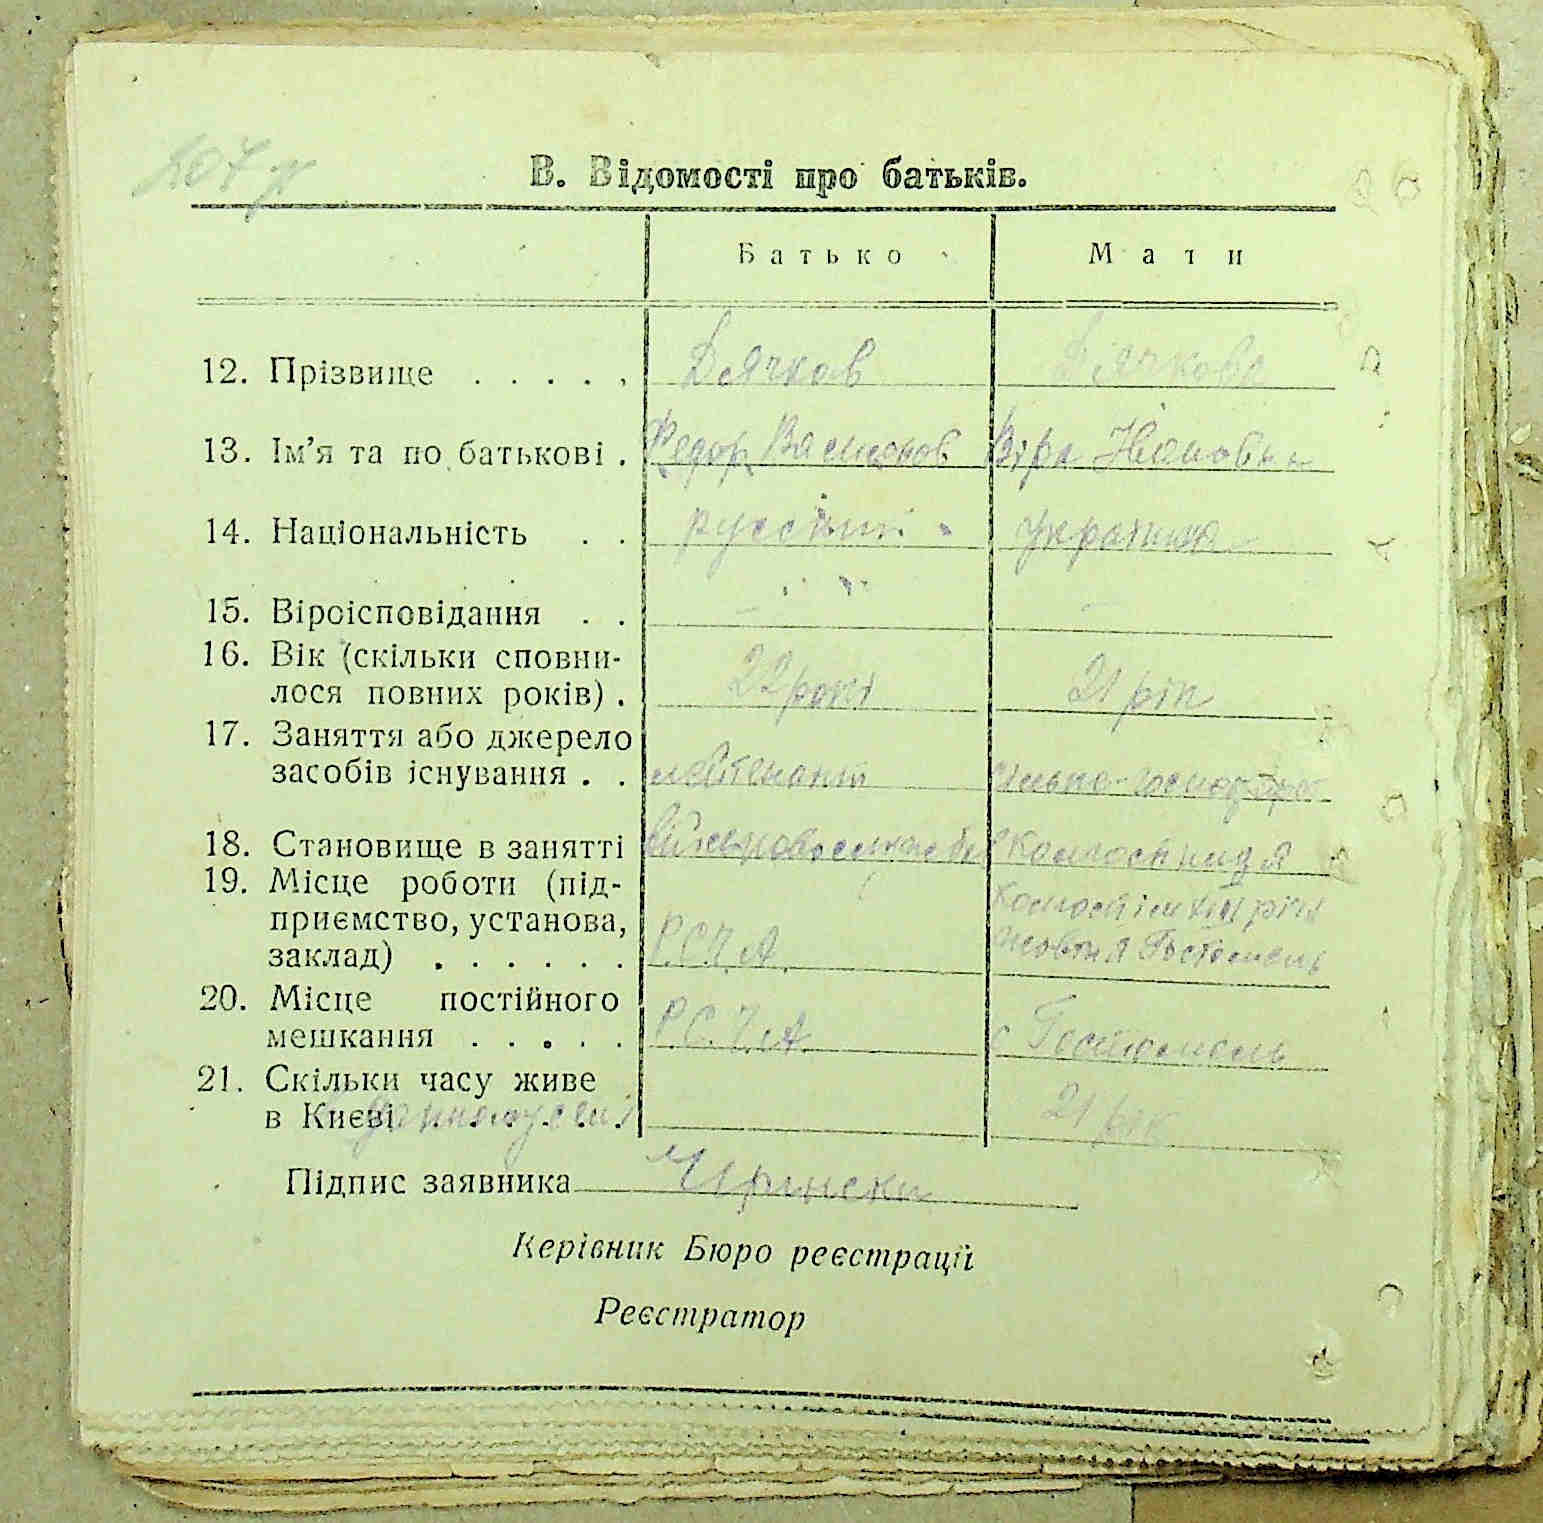 107
В. Відомості про батьків.
Батько Мати
12. Прізвище . . . . . Дячков Дячкова
13. Ім'я та по батькові . Федор Віра Івановна
14. Національність . . русский українка
15. Віроісповідання . . — —
16. Вік (скільки сповни-
лося повних років) . 22 роки 21 рік
17. Заняття або джерело
засобів існування . . лейтенант
18. Становище в занятті
19. Місце роботи (під-
приємство, установа,
заклад) . . . . . . Р.С.Ч.А. Жовтня Гостомель
20. Місце постійного
мешкання . . . . . Р.С.Ч.А. с Гостомель
21. Скільки часу живе
в Києві 21 рік
Підпис заявника
Керівник Бюро реєстрації
Реєстратор